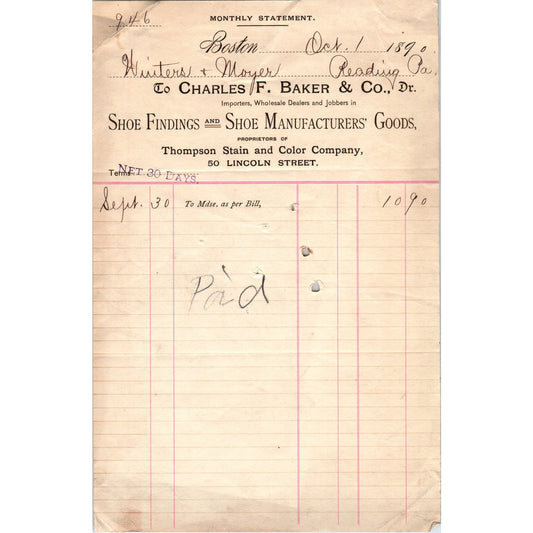 946
MONTHLY STATEMENT.
Boston Oct. 1 1890.
Winters & Moyer Reading Pa.
To CHARLES F. BAKER & CO., Dr.
Importers, Wholesale Dealers and Jobbers in
SHOE FINDINGS AND SHOE MANUFACTURERS' GOODS,
PROPRIETORS OF
Thompson Stain and Color Company,
50 LINCOLN STREET.
Terms NET. 30 DAYS.
Sept. 30 To Mdse. as per Bill, 10 90
Paid